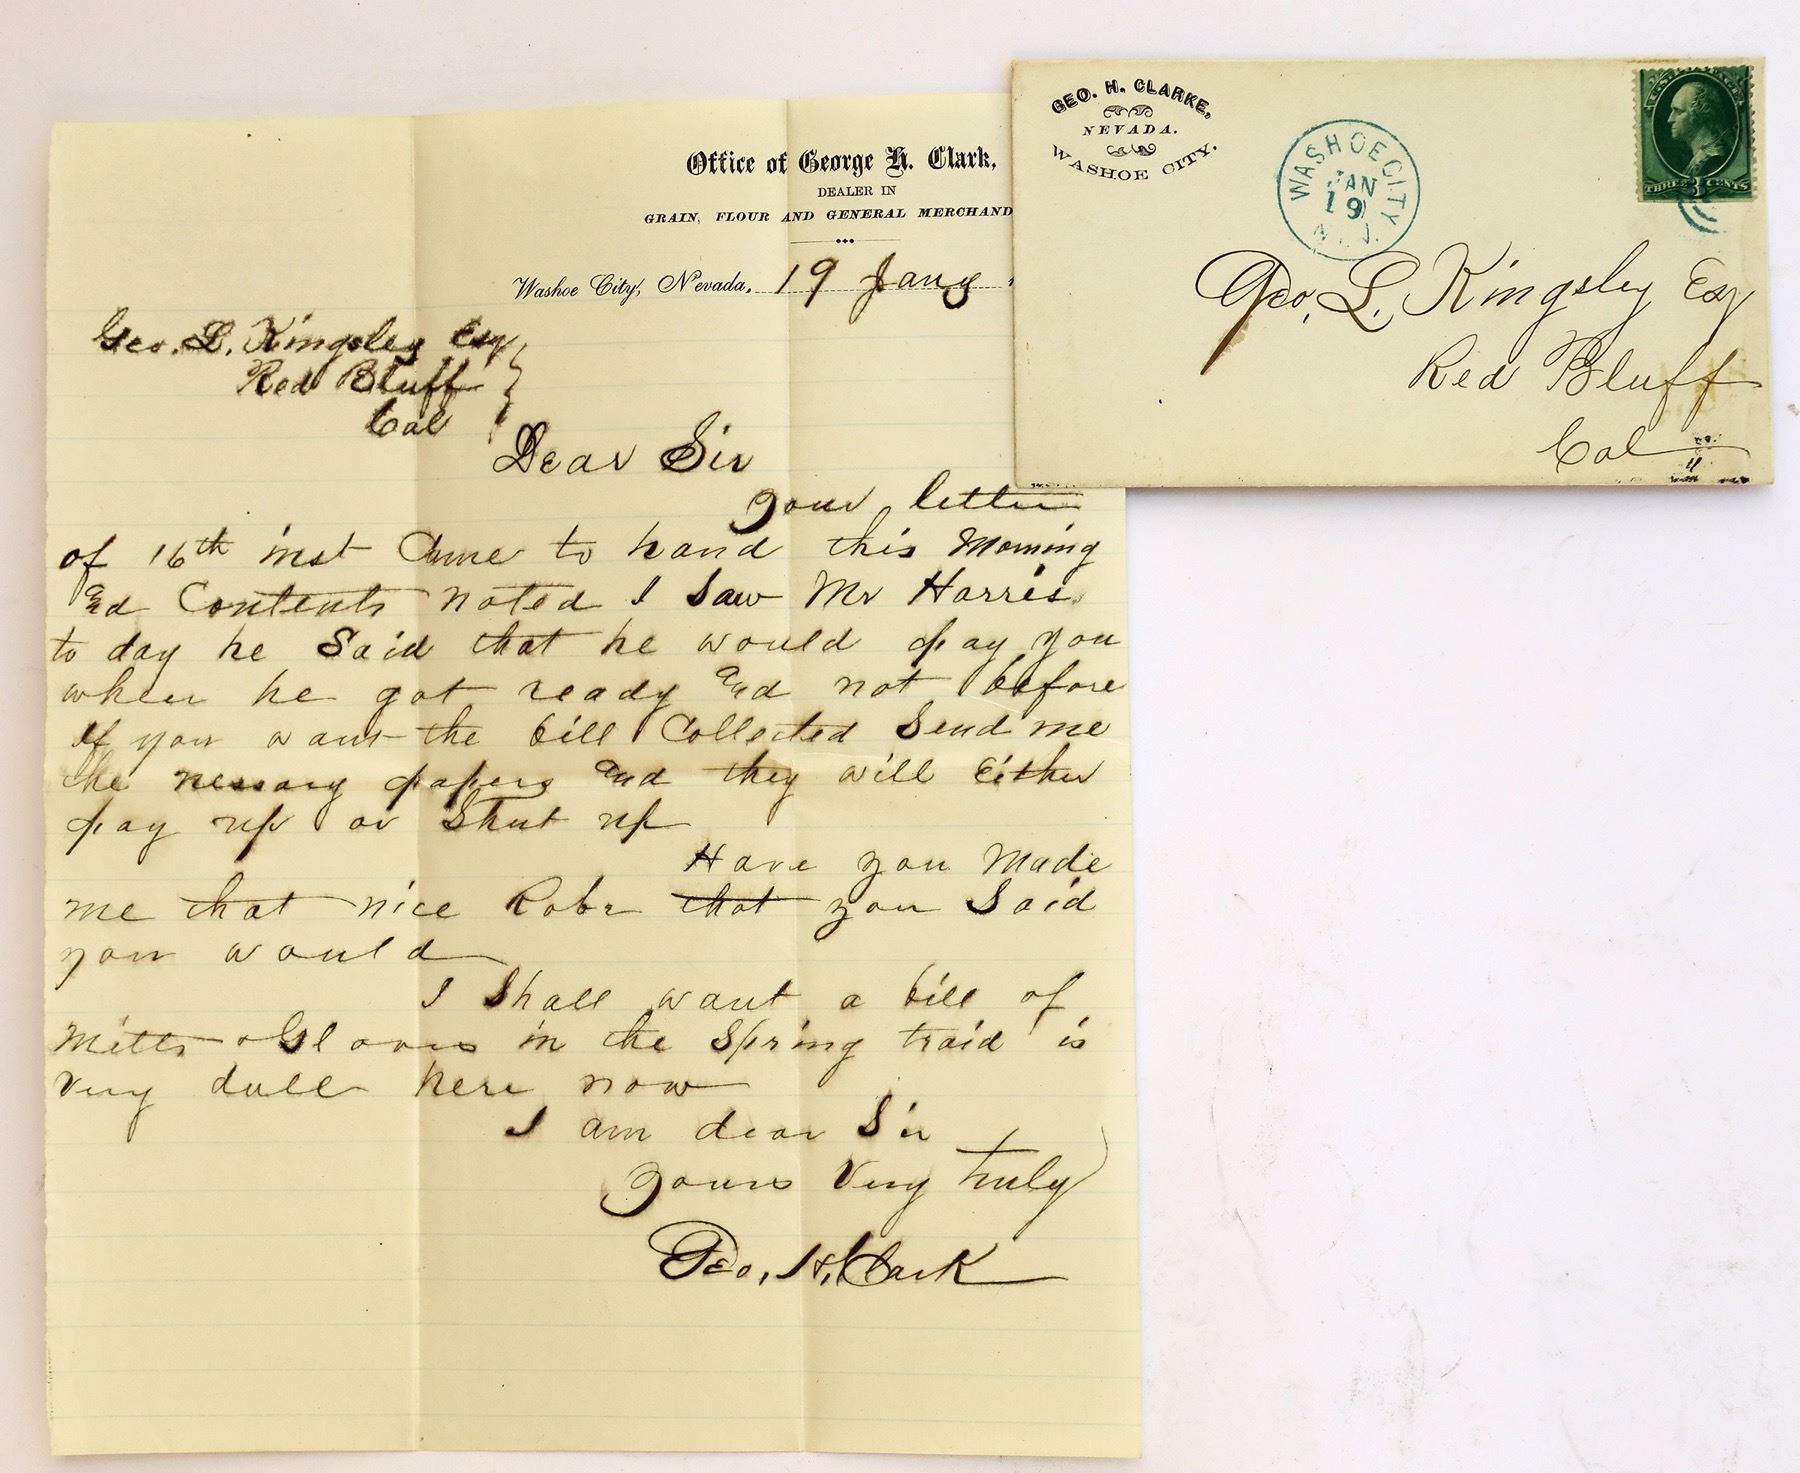 Office of George H. Clark,
DEALER IN
GRAIN, FLOUR AND GENERAL MERCHAND
Washoe City, Nevada, 19 Jany
Geo. L. Kingsley Esq
Red Bluff
Cal
Dear Sir
your letter
of 16th inst Came to hand this Morning
and Contents noted I Saw Mr Harris
to day he Said that he would pay you
when he got ready and not before
If you want the bill Collected Send me
the nessary papers and they will Either
pay up or Shut up
Have you Made
me that nice Robe that you Said
you would
I Shall want a bill of
Mitts & Gloves in the Spring traid is
very dull here now
I am dear Sir
yours Very truly
Geo. H. Clark
GEO. H. CLARKE,
NEVADA.
WASHOE CITY.
WASHOE CITY
JAN
19
NEV.
THREE 3 CENTS
Geo. L. Kingsley Esq
Red Bluff
Cal